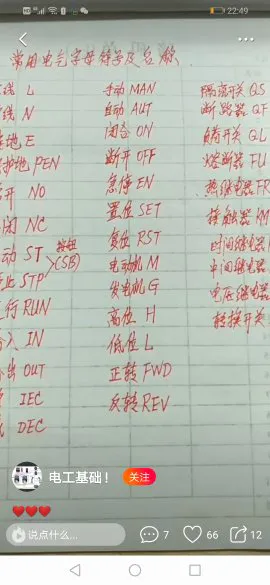 22:49
常用电气字母符号及名称
线 L
线 N
地 E
护地 PEN
开 NO
闭 NC
动 ST
按钮
(SB)
止 STP
行 RUN
入 IN
出 OUT
IEC
DEC
手动 MAN
自动 AUT
闭合 ON
断开 OFF
急停 EN
置位 SET
复位 RST
电动机 M
发电机 G
高位 H
低位 L
正转 FWD
反转 REV
隔离开关 QS
断路器 QF
负荷开关 QL
熔断器 FU
热继电器 FR
接触器 KM
时间继电器
中间继电器
电压继电器
转换开关
电工基础!
关注
说点什么...
7
66
12